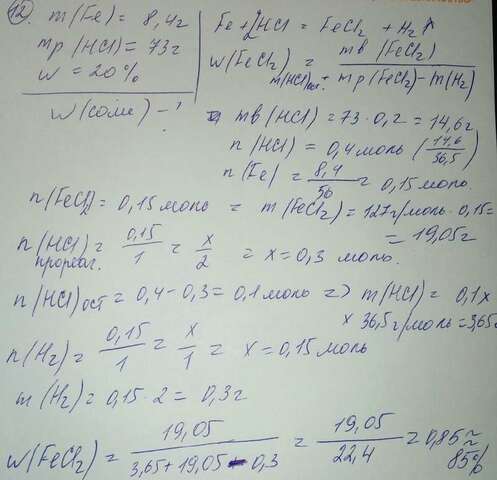 12.
m(Fe) = 8,4г
mр(HCl) = 73г
w = 20%
w(соли) - ?
Fe + 2HCl = FeCl₂ + H₂↑
w(FeCl₂) = mв(FeCl₂) / m(HCl)ост. + mр(FeCl₂) - m(H₂)
mв(HCl) = 73 · 0,2 = 14,6г
n(HCl) = 0,4 моль (14,6/36,5)
n(Fe) = 8,4/56 = 0,15 моль.
n(FeCl₂) = 0,15 моль = m(FeCl₂) = 127г/моль · 0,15 =
= 19,05г
n(HCl) прореаг. = 0,15/1 = x/2 = x = 0,3 моль.
n(HCl)ост = 0,4 - 0,3 = 0,1 моль => m(HCl) = 0,1 x
x 36,5г/моль = 3,65г
n(H₂) = 0,15/1 = x/1 = x = 0,15 моль
m(H₂) = 0,15 · 2 = 0,3г
w(FeCl₂) = 19,05 / 3,65 + 19,05 - 0,3 = 19,05 / 22,4 = 0,85 ≈
≈ 85%